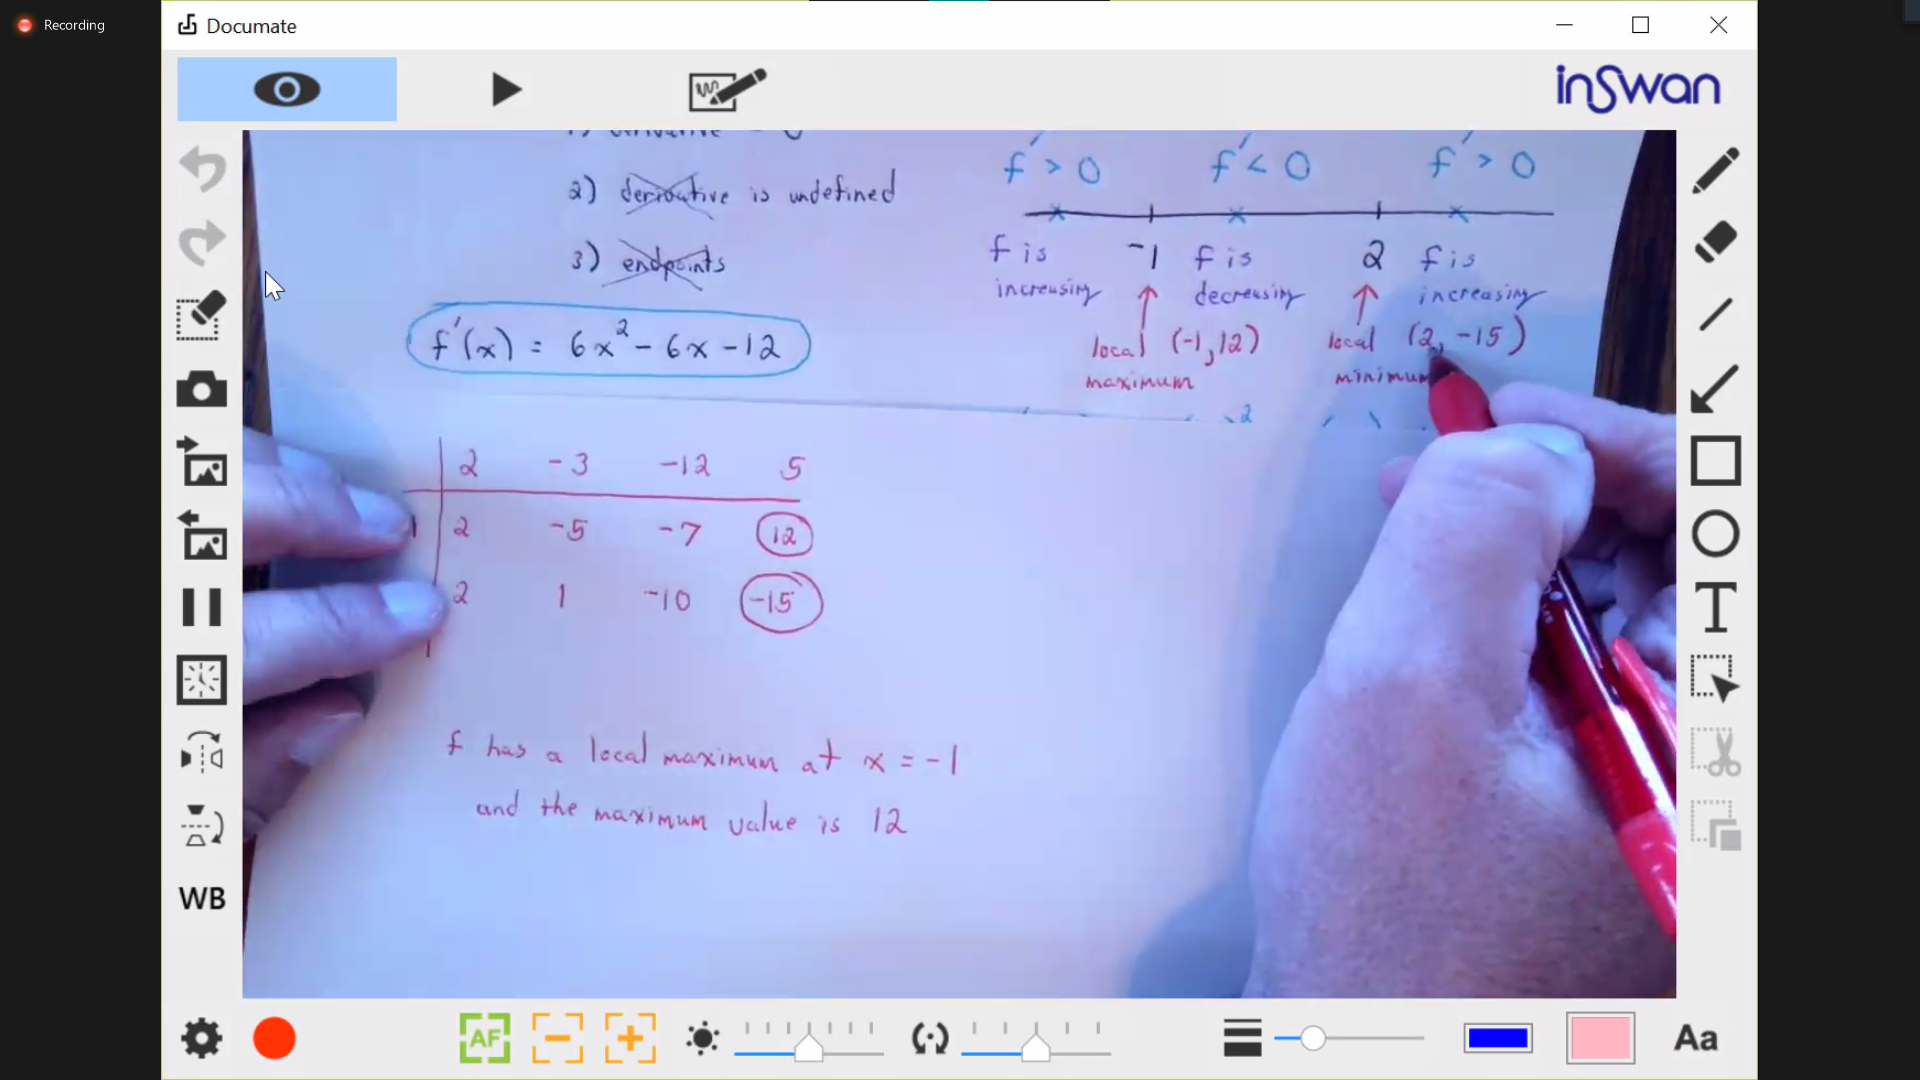 Recording
Documate
inSwan
2) derivative is undefined
3) endpoints
f'(x) = 6x² - 6x - 12
f' > 0 f' < 0 f' > 0
f is -1 f is 2 f is
increasing decreasing increasing
local (-1, 12) local (2, -15)
maximum minimum
2 -3 -12 5
1 2 -5 -7 12
2 1 -10 -15
f has a local maximum at x = -1
and the maximum value is 12
WB
T
AF
Aa